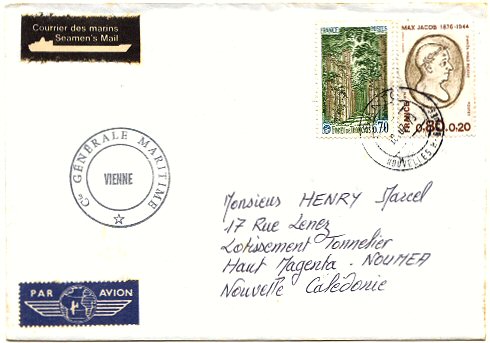 Courrier des marins
Seamen's Mail
FRANCE
0,70
MAX JACOB 1876-1944
FRANCE
0,80+0,20
NOUVELLES
Cie GÉNÉRALE MARITIME
VIENNE
Monsieur HENRY Marcel
17 Rue Lenez
Lotissement Tonnelier
Haut Magenta. NOUMEA
Nouvelle Calédonie
PAR AVION